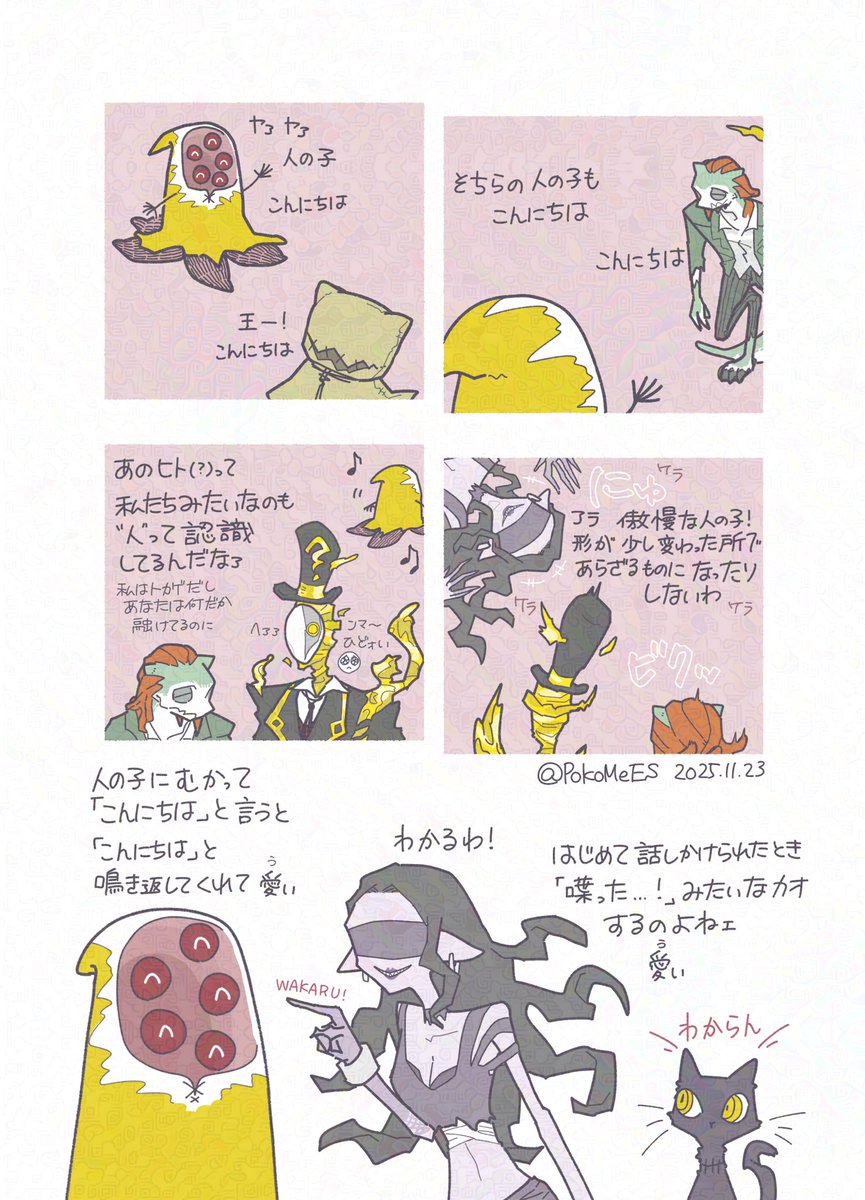 ヤァ ヤァ
人の子
こんにちは
王ー!
こんにちは
そちらの人の子も
こんにちは
こんにちは
あのヒト(?)って
私たちみたいなのも
"人"って認識
してるんだなァ
私はトカゲだし
あなたは何だか
融けてるのに
へぇぇ
ンマ〜
ひどォい
ケラ
にゅ
アラ 傲慢な人の子!
形が少し変わった所で
あらざるものになったり
しないわ
ケラ
ケラ
ビクッ
@PokoMeES 2025.11.23
人の子にむかって
「こんにちは」と言うと
「こんにちは」と
鳴き返してくれて愛い
う
わかるわ!
WAKARU!
はじめて話しかけられたとき
「喋った…!」みたいなカオ
するのよねェ
う
愛い
わからん